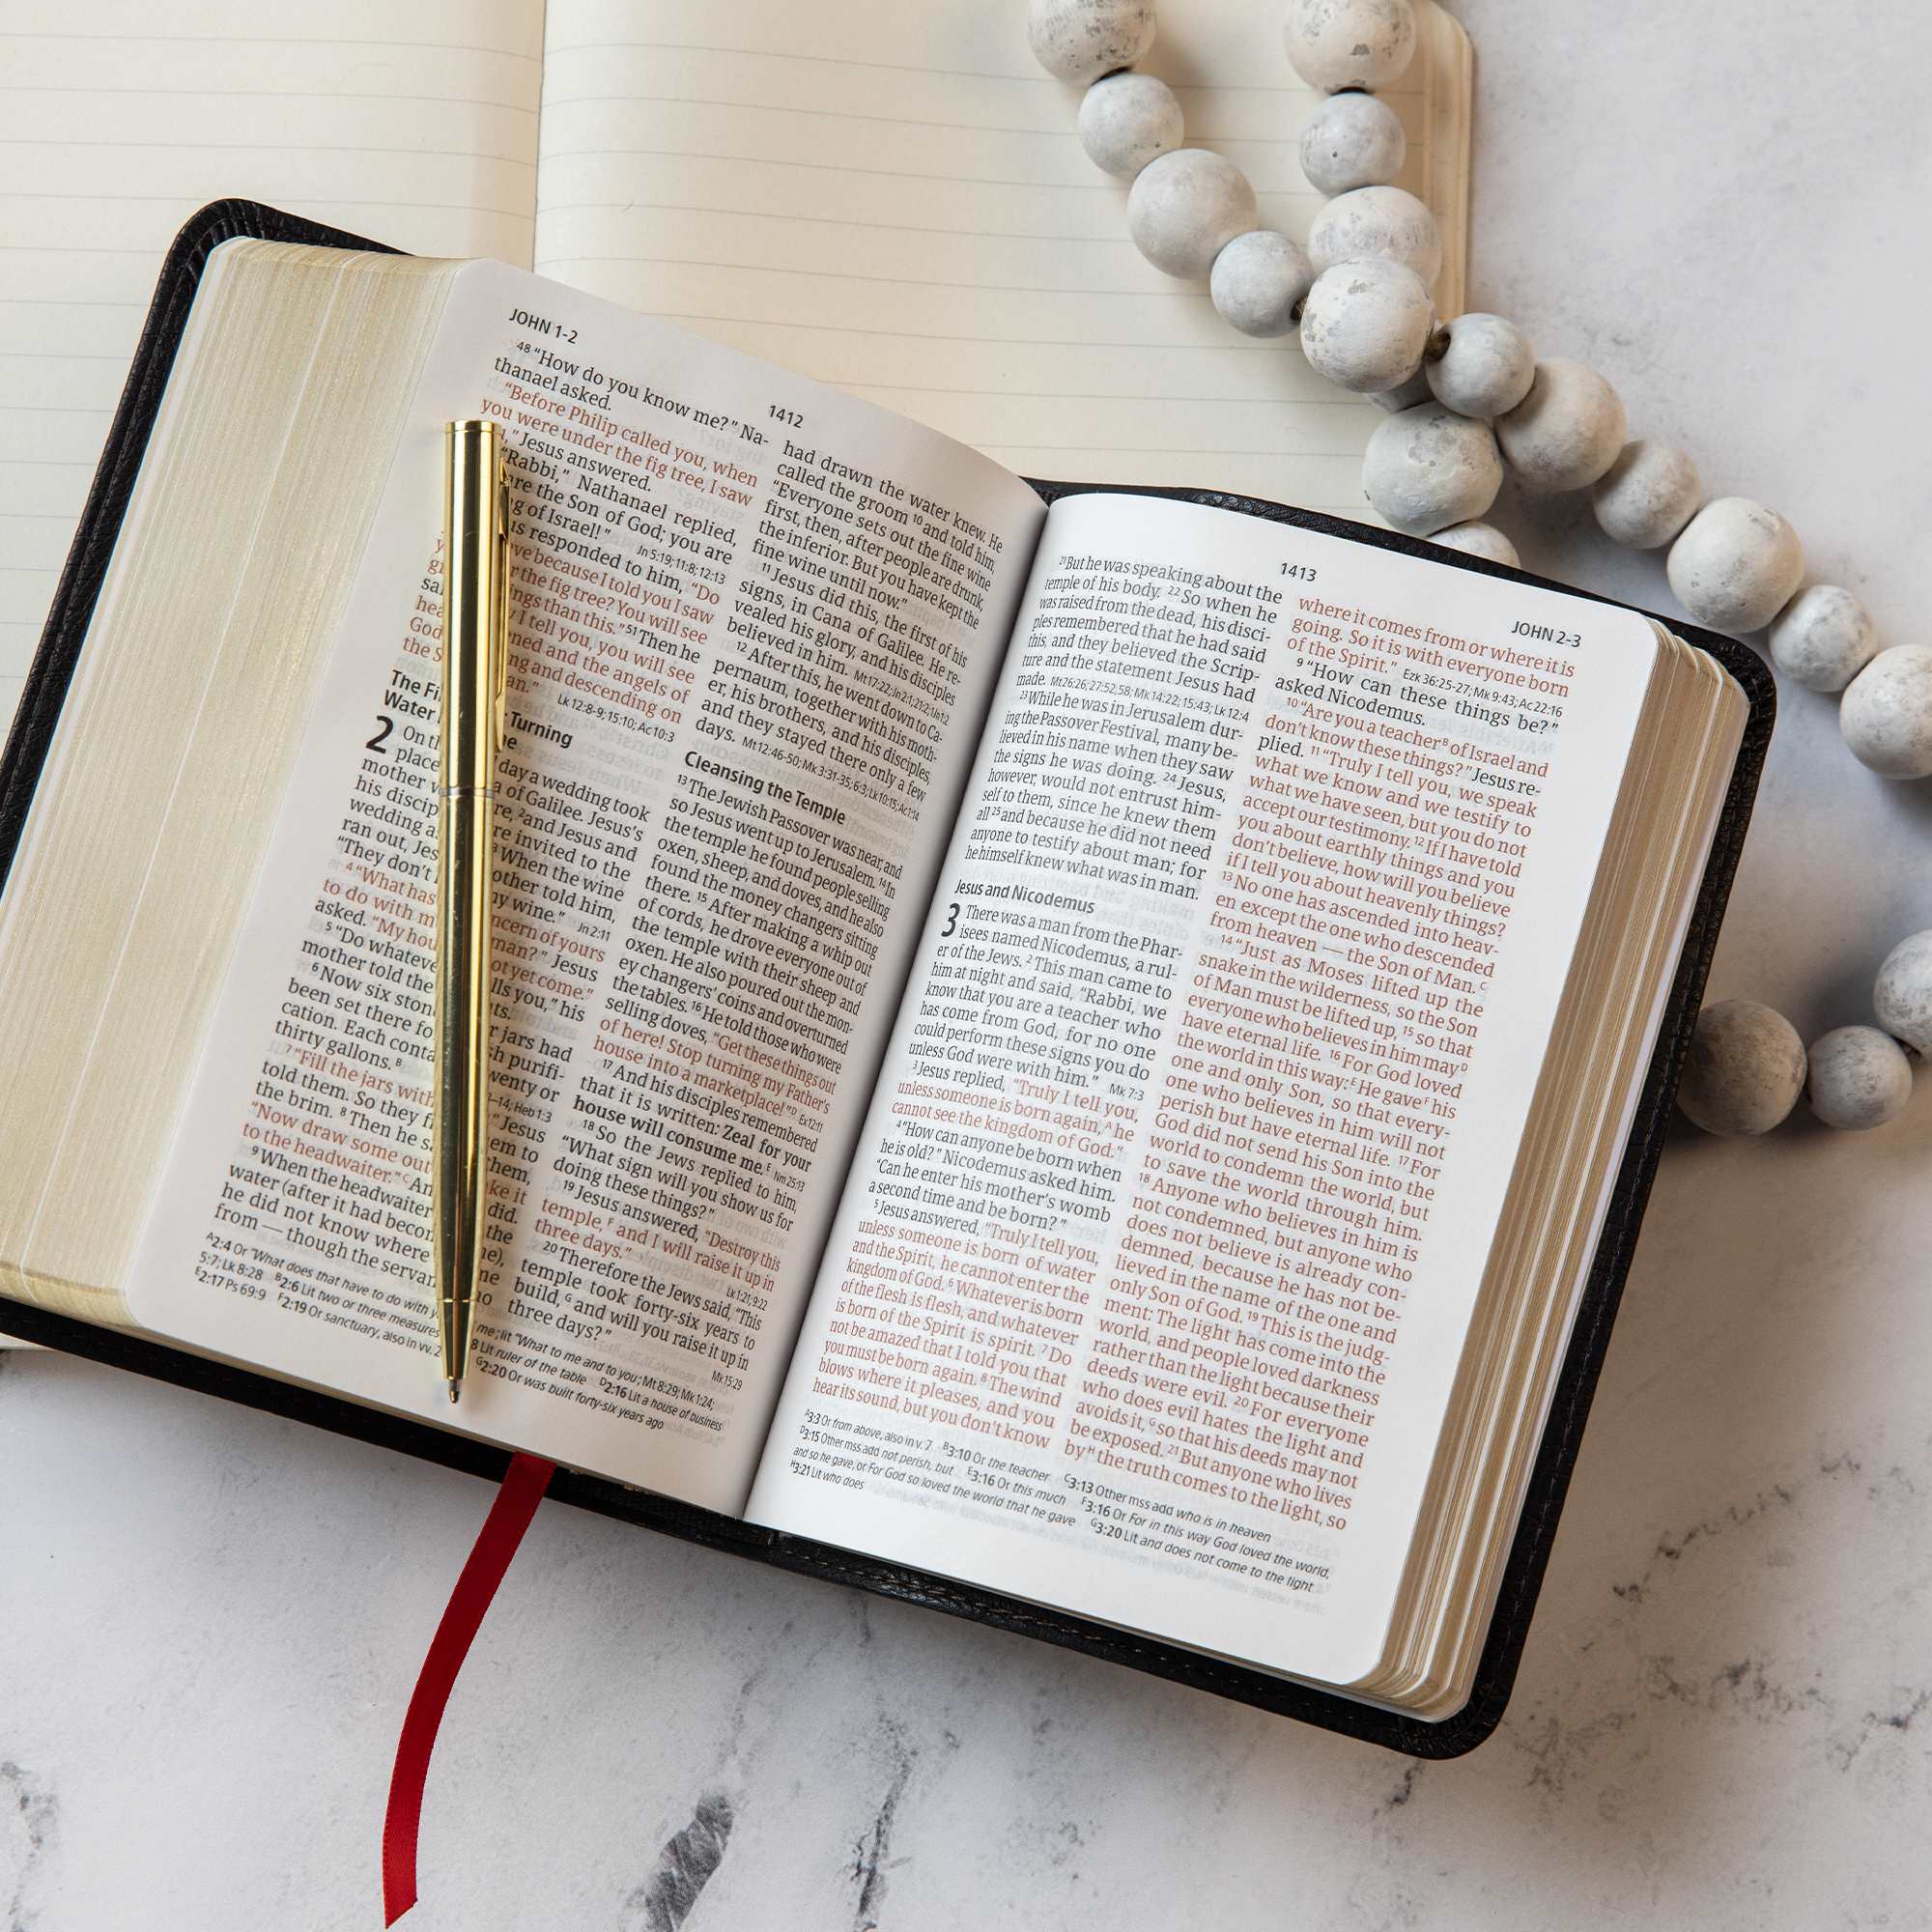 JOHN 1-2
1412
48 “How do you know me?” Na-
thanael asked.
“Before Philip called you, when
you were under the fig tree, I saw
,” Jesus answered.
“Rabbi,” Nathanael replied,
are the Son of God; you are
of Israel!” Jn 5:19; 11:8; 12:13
responded to him, “Do
because I told you I saw
the fig tree? You will see
than this.” 51 Then he
I tell you, you will see
and the angels of
God and descending on
the Lk 12:8-9; 15:10; Ac 10:3
The Turning
Water
2 On day a wedding took
place of Galilee. Jesus’s
mother 2 and Jesus and
his invited to the
wedding 3 When the wine
ran out, told him,
“They don’t wine.” Jn 2:11
4 “What has of yours
to do with Jesus
asked. “My yet come.”
5 “Do you,” his
mother told the
6 Now six jars had
been set there purifi-
cation. Each or
thirty gallons. B
7 “Fill the jars Jesus
told them. So they to
the brim. 8 Then he them,
“Now draw some out it
to the headwaiter.” C did.
9 When the headwaiter the
water (after it had
he did not know where
from — though the
had drawn the water knew. He
called the groom 10 and told him,
“Everyone sets out the fine wine
first, then, after people are drunk,
the inferior. But you have kept the
fine wine until now.”
11 Jesus did this, the first of his
signs, in Cana of Galilee. He re-
vealed his glory, and his disciples
believed in him. Mt 17:22; Jn 2:1; 21:2; 1Jn 1:2
12 After this, he went down to Ca-
pernaum, together with his moth-
er, his brothers, and his disciples,
and they stayed there only a few
days. Mt 12:46-50; Mk 3:31-35; 6:3; Lk 10:15; Ac 1:14
Cleansing the Temple
13 The Jewish Passover was near, and
so Jesus went up to Jerusalem. 14 In
the temple he found people selling
oxen, sheep, and doves, and he also
found the money changers sitting
there. 15 After making a whip out
of cords, he drove everyone out of
the temple with their sheep and
oxen. He also poured out the mon-
ey changers’ coins and overturned
the tables. 16 He told those who were
selling doves, “Get these things out
of here! Stop turning my Father’s
house into a marketplace!” D Ex 12:11
17 And his disciples remembered
that it is written: Zeal for your
house will consume me. E Nm 25:13
18 So the Jews replied to him,
“What sign will you show us for
doing these things?”
19 Jesus answered, “Destroy this
temple, F and I will raise it up in
three days.” Lk 1:21; 9:22
20 Therefore the Jews said, “This
temple took forty-six years to
build, G and will you raise it up in
three days?” Mk 15:29
A2:4 Or “What does that have to do with me; lit “What to me and to you; Mt 8:29; Mk 1:24;
5:7; Lk 8:28 B2:6 Lit two or three measures Lit ruler of the table D2:16 Lit a house of business
E2:17 Ps 69:9 F2:19 Or sanctuary, also in vv. G2:20 Or was built forty-six years ago
1413
JOHN 2-3
21 But he was speaking about the
temple of his body. 22 So when he
was raised from the dead, his disci-
ples remembered that he had said
this, and they believed the Scrip-
ture and the statement Jesus had
made. Mt 26:26; 27:52,58; Mk 14:22; 15:43; Lk 12:4
23 While he was in Jerusalem dur-
ing the Passover Festival, many be-
lieved in his name when they saw
the signs he was doing. 24 Jesus,
however, would not entrust him-
self to them, since he knew them
all 25 and because he did not need
anyone to testify about man; for
he himself knew what was in man.
Jesus and Nicodemus
3 There was a man from the Phar-
isees named Nicodemus, a rul-
er of the Jews. 2 This man came to
him at night and said, “Rabbi, we
know that you are a teacher who
has come from God, for no one
could perform these signs you do
unless God were with him.” Mk 7:3
3 Jesus replied, “Truly I tell you,
unless someone is born again, A he
cannot see the kingdom of God.”
4 “How can anyone be born when
he is old?” Nicodemus asked him.
“Can he enter his mother’s womb
a second time and be born?”
5 Jesus answered, “Truly I tell you,
unless someone is born of water
and the Spirit, he cannot enter the
kingdom of God. 6 Whatever is born
of the flesh is flesh, and whatever
is born of the Spirit is spirit. 7 Do
not be amazed that I told you that
you must be born again. 8 The wind
blows where it pleases, and you
hear its sound, but you don’t know
where it comes from or where it is
going. So it is with everyone born
of the Spirit.” Ezk 36:25-27; Mk 9:43; Ac 22:16
9 “How can these things be?”
asked Nicodemus.
10 “Are you a teacher B of Israel and
don’t know these things?” Jesus re-
plied. 11 “Truly I tell you, we speak
what we know and we testify to
what we have seen, but you do not
accept our testimony. 12 If I have told
you about earthly things and you
don’t believe, how will you believe
if I tell you about heavenly things?
13 No one has ascended into heav-
en except the one who descended
from heaven — the Son of Man. C
14 “Just as Moses lifted up the
snake in the wilderness, so the Son
of Man must be lifted up, 15 so that
everyone who believes in him may D
have eternal life. 16 For God loved
the world in this way: E He gave F his
one and only Son, so that every-
one who believes in him will not
perish but have eternal life. 17 For
God did not send his Son into the
world to condemn the world, but
to save the world through him.
18 Anyone who believes in him is
not condemned, but anyone who
does not believe is already con-
demned, because he has not be-
lieved in the name of the one and
only Son of God. 19 This is the judg-
ment: The light has come into the
world, and people loved darkness
rather than the light because their
deeds were evil. 20 For everyone
who does evil hates the light and
avoids it, G so that his deeds may not
be exposed. 21 But anyone who lives
by H the truth comes to the light, so
A3:3 Or from above, also in v. 7 B3:10 Or the teacher C3:13 Other mss add who is in heaven
D3:15 Other mss add not perish, but E3:16 Or this much F3:16 Or For in this way God loved the world,
and so he gave, or For God so loved the world that he gave G3:20 Lit and does not come to the light
H3:21 Lit who does